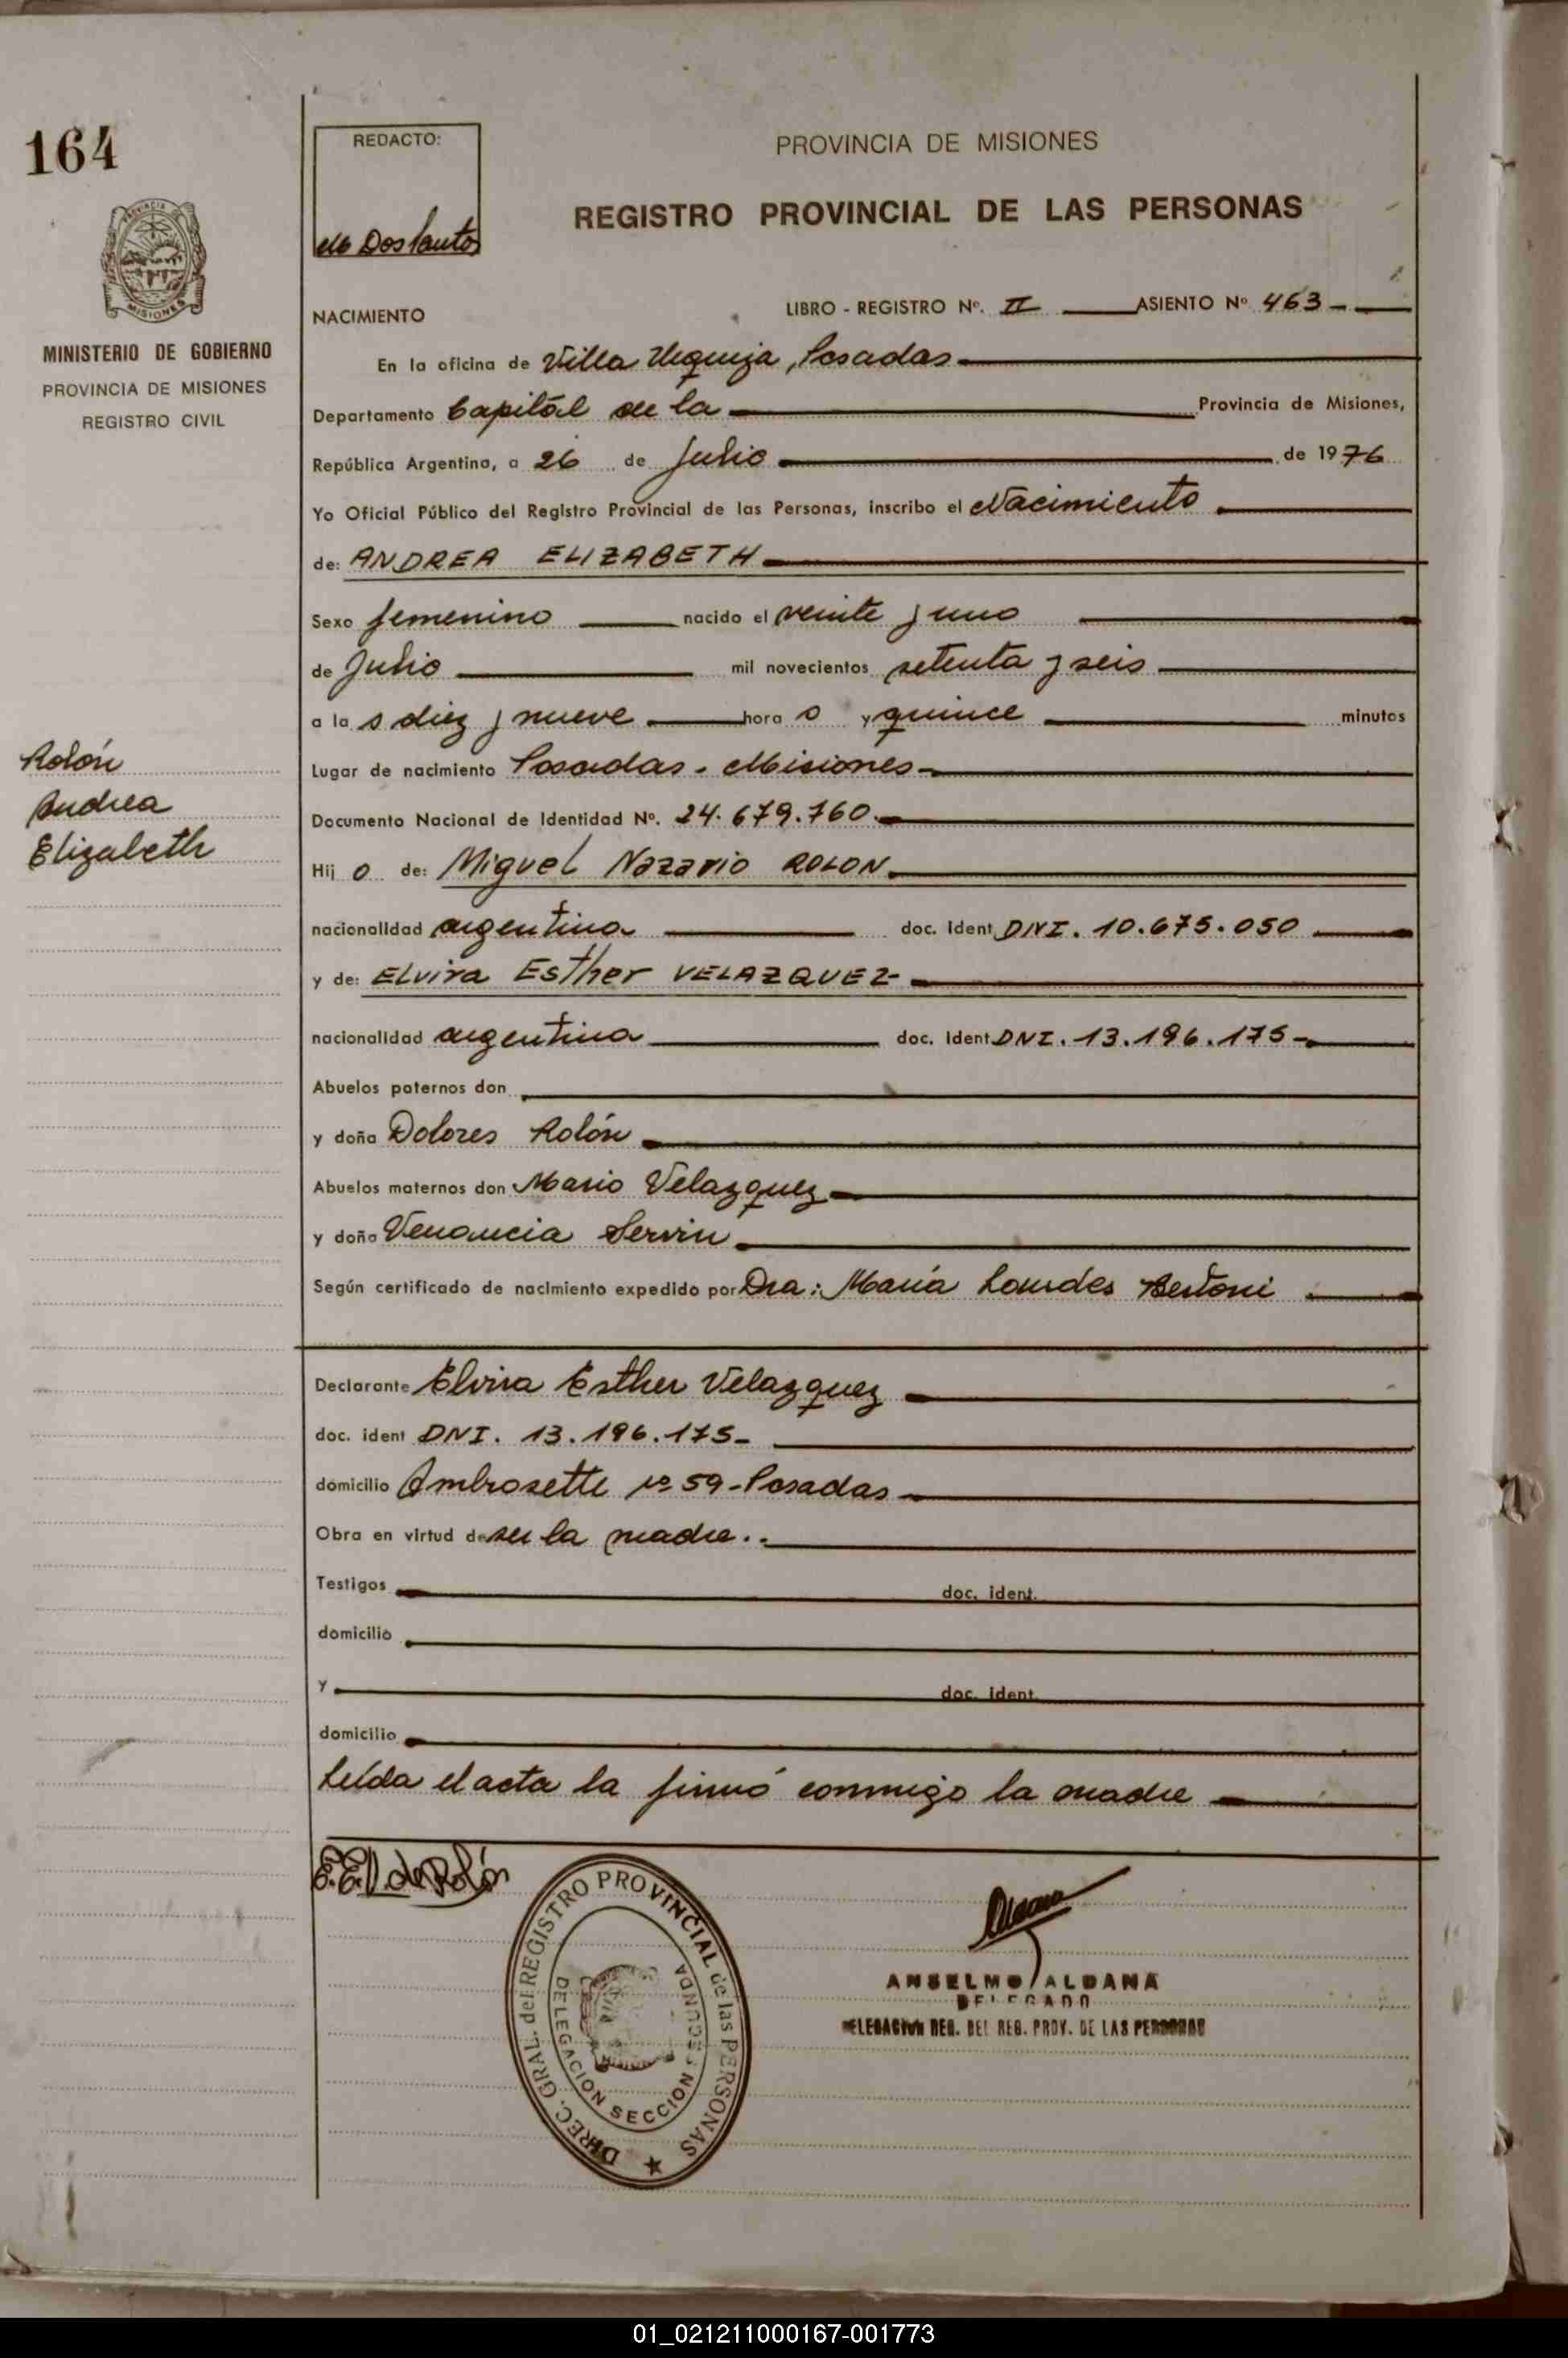 164
REDACTO:
Dos Santos
PROVINCIA DE MISIONES
REGISTRO PROVINCIAL DE LAS PERSONAS
PROVINCIA DE
MISIONES
MINISTERIO DE GOBIERNO
PROVINCIA DE MISIONES
REGISTRO CIVIL
NACIMIENTO LIBRO - REGISTRO Nº. II ASIENTO Nº 463-
En la oficina de Villa Urquiza, Posadas
Departamento Capitál de la Provincia de Misiones,
República Argentina, a 26 de Julio de 1976
Yo Oficial Público del Registro Provincial de las Personas, inscribo el Nacimiento
de: ANDREA ELIZABETH
Sexo femenino nacido el veinte y uno
de Julio mil novecientos setenta y seis
a la s diez y nueve hora s y quince minutos
Lugar de nacimiento Posadas - Misiones
Documento Nacional de Identidad Nº. 24.679.760.
Rolón
Andrea
Elizabeth
Hij a de: Miguel Nazario ROLON
nacionalidad argentina doc. Ident DNI. 10.675.050
y de: Elvira Esther VELAZQUEZ
nacionalidad argentina doc. Ident DNI. 13.196.175
Abuelos paternos don
y doña Dolores Rolón
Abuelos maternos don Mario Velazquez
y doña Venancia Servin
Según certificado de nacimiento expedido por Dra: María Lourdes Bertoni
Declarante Elvira Esther Velazquez
doc. ident DNI. 13.196.175-
domicilio Ambrosetti Nº 59 - Posadas
Obra en virtud de ser la madre.
Testigos doc. ident.
domicilio
y doc. ident.
domicilio
Leída el acta la firmó conmigo la madre
E.E.V. de Rolón
DIREC. GRAL. del REGISTRO PROVINCIAL de las PERSONAS
DELEGACION SECCION SEGUNDA
ANSELMO ALDANA
DELEGADO
DELEGACION REG. DEL REG. PROV. DE LAS PERSONAS
01_021211000167-001773